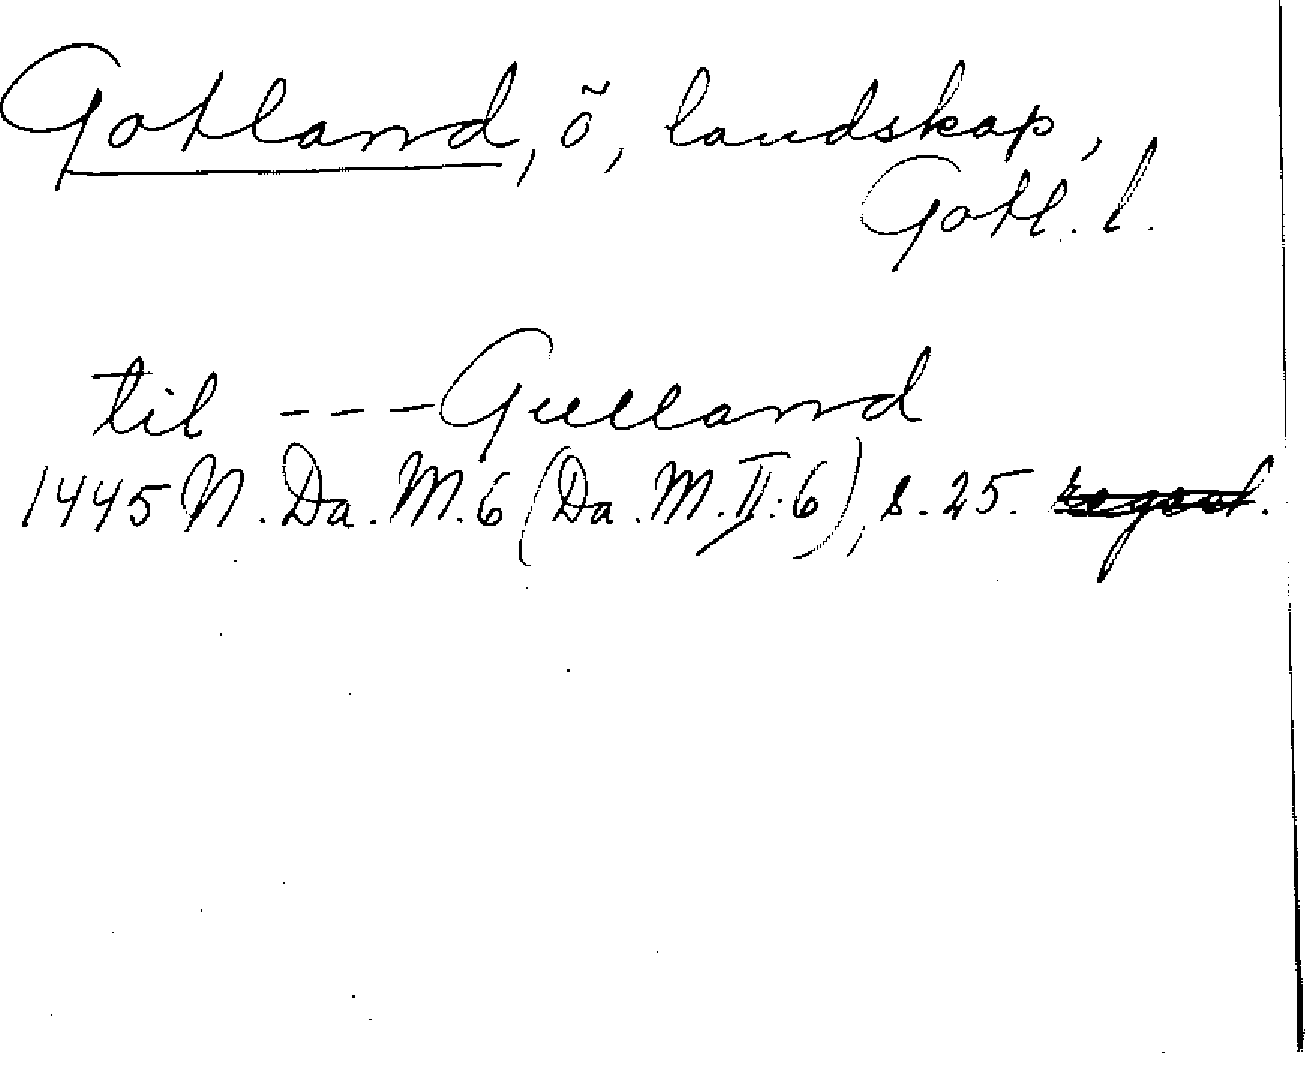 Gotland, ö, landskap,
Gotl. l.
til --- Gulland
1445 N. Da. M. 6 (Da. M. II: 6), s. 25.